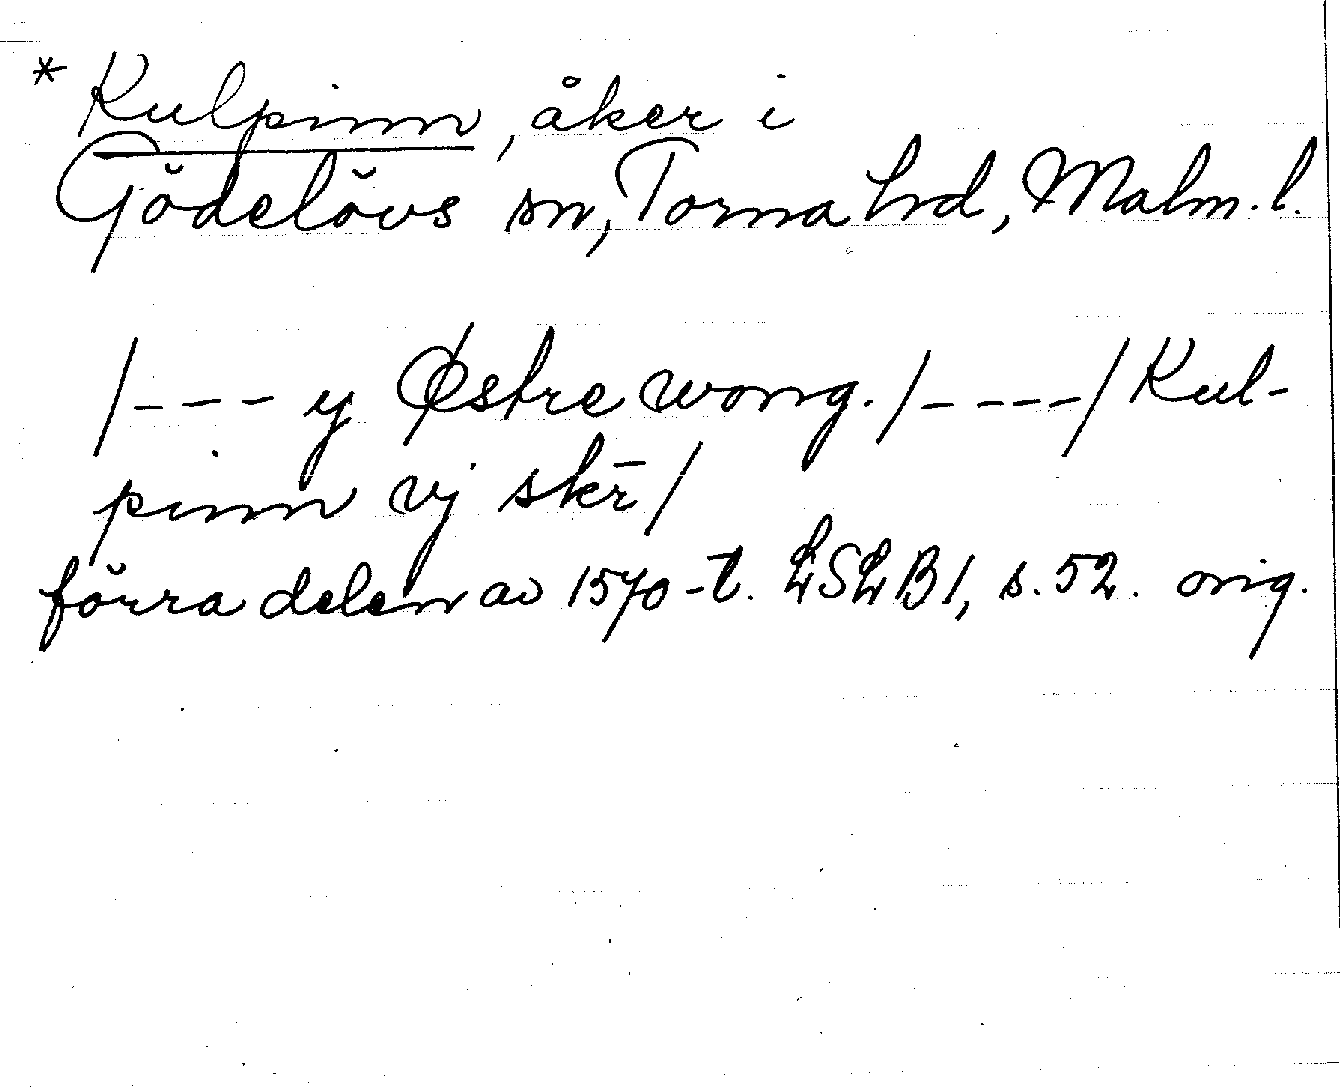 * Kulpinn, åker i
Gödelövs sn, Torna hrd, Malm. l.
/--- y Østre wong. /----/ Kul-
pinn vj skr̄ /
förra delen av 1570-t. LSLB1, s. 52. orig.